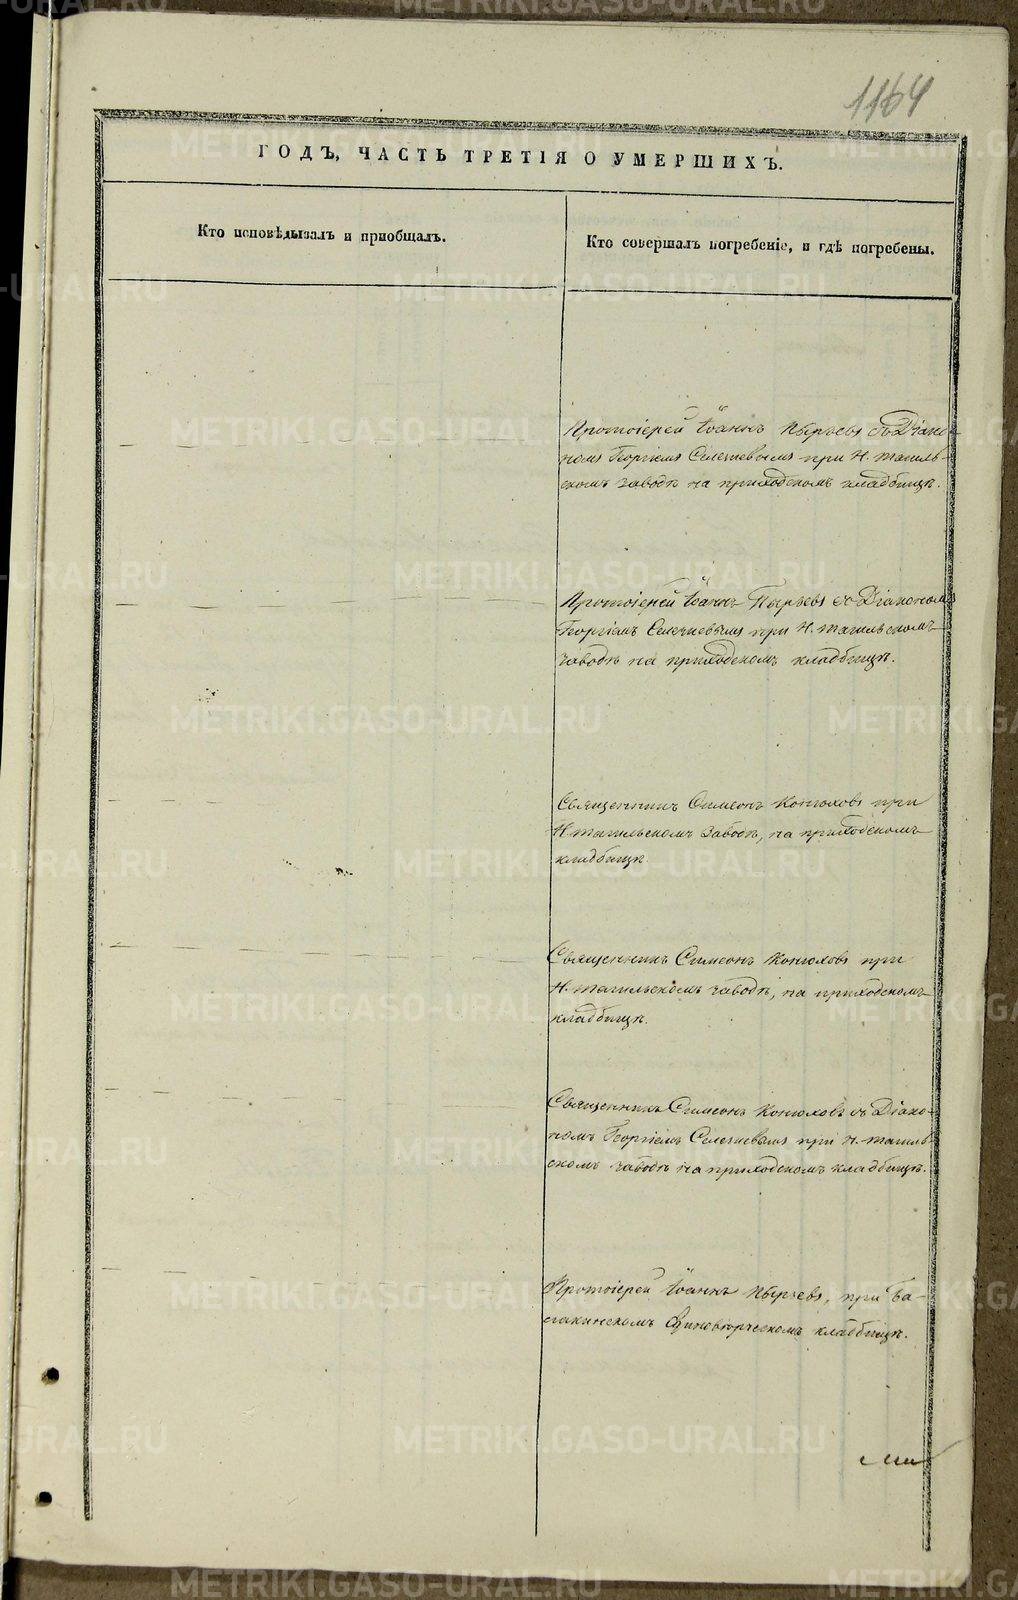 1164
ГОДЪ, ЧАСТЬ ТРЕТІЯ О УМЕРШИХЪ.
Кто исповѣдывалъ и приобщалъ.
Кто совершалъ погребеніе, и гдѣ погребены.
Протоіерей Іоаннъ Пырьевъ съ Діако-
номъ Георгіемъ Селезневымъ при Н. Тагиль-
скомъ заводѣ на приходскомъ кладбищѣ.
Протоіерей Іоаннъ Пырьевъ съ Діакономъ
Георгіемъ Селезневымъ при Н. Тагильскомъ
заводѣ на приходскомъ кладбищѣ.
Священникъ Симеонъ Конюховъ при
Н. Тагильскомъ заводѣ, на приходскомъ
кладбищѣ.
Священникъ Симеонъ Конюховъ при
Н. Тагильскомъ заводѣ, на приходскомъ
кладбищѣ.
Священникъ Симеонъ Конюховъ съ Діако-
номъ Георгіемъ Селезневымъ при Н. Тагиль
скомъ заводѣ на приходскомъ кладбищѣ.
Протоіерей Іоаннъ Пырьевъ, при Ба-
Единовѣрческомъ кладбищѣ.
METRIKI.GASO-URAL.RU